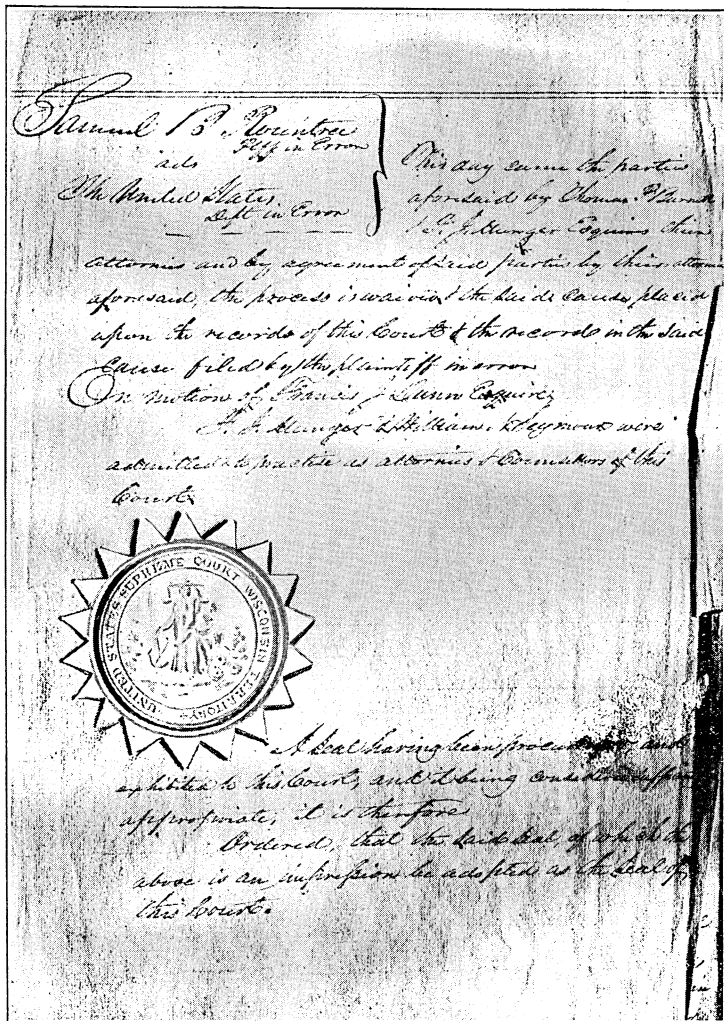 Samuel B. Rountree
Plff in Error
ads
The United States
Deft in Error
This day came the parties
aforesaid by Thomas P. Burnett
& F. J. Munger Esquires their
attornies and by agreement of said parties by their attornies
aforesaid, the process is waived & the said cause placed
upon the records of this Court & the record in the said
cause filed by the plaintiff in error
On motion of Francis J Dunn Esquire,
F. J. Munger & William Seymour were
admitted to practise as attornies & Counsellors of this
Court.
UNITED STATES SUPREME COURT WISCONSIN TERRITORY
A Seal having been procured and
exhibited to this Court, and it being considered
appropriate, it is therefore
Ordered, that the said Seal, of which the
above is an impression be adopted as the Seal of
this Court.